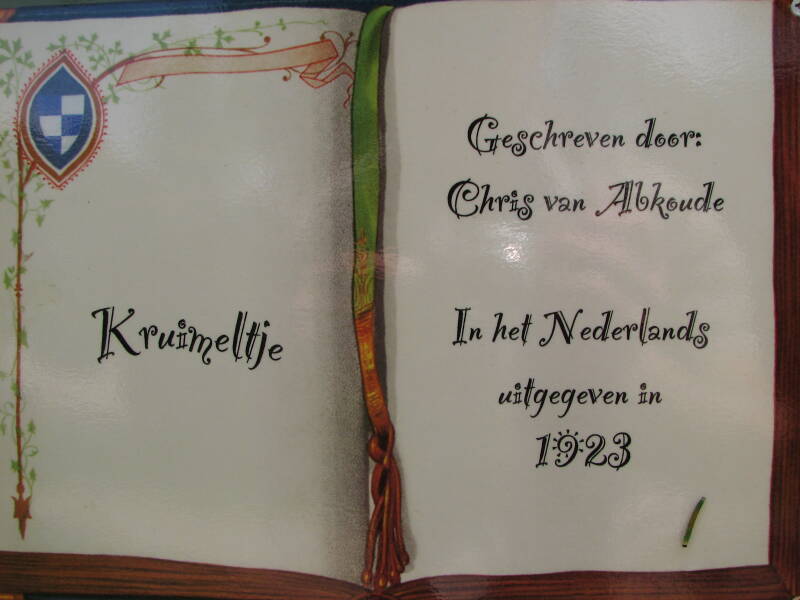 Kruimeltje
Geschreven door:
Chris van Abkoude
In het Nederlands
uitgegeven in
1923